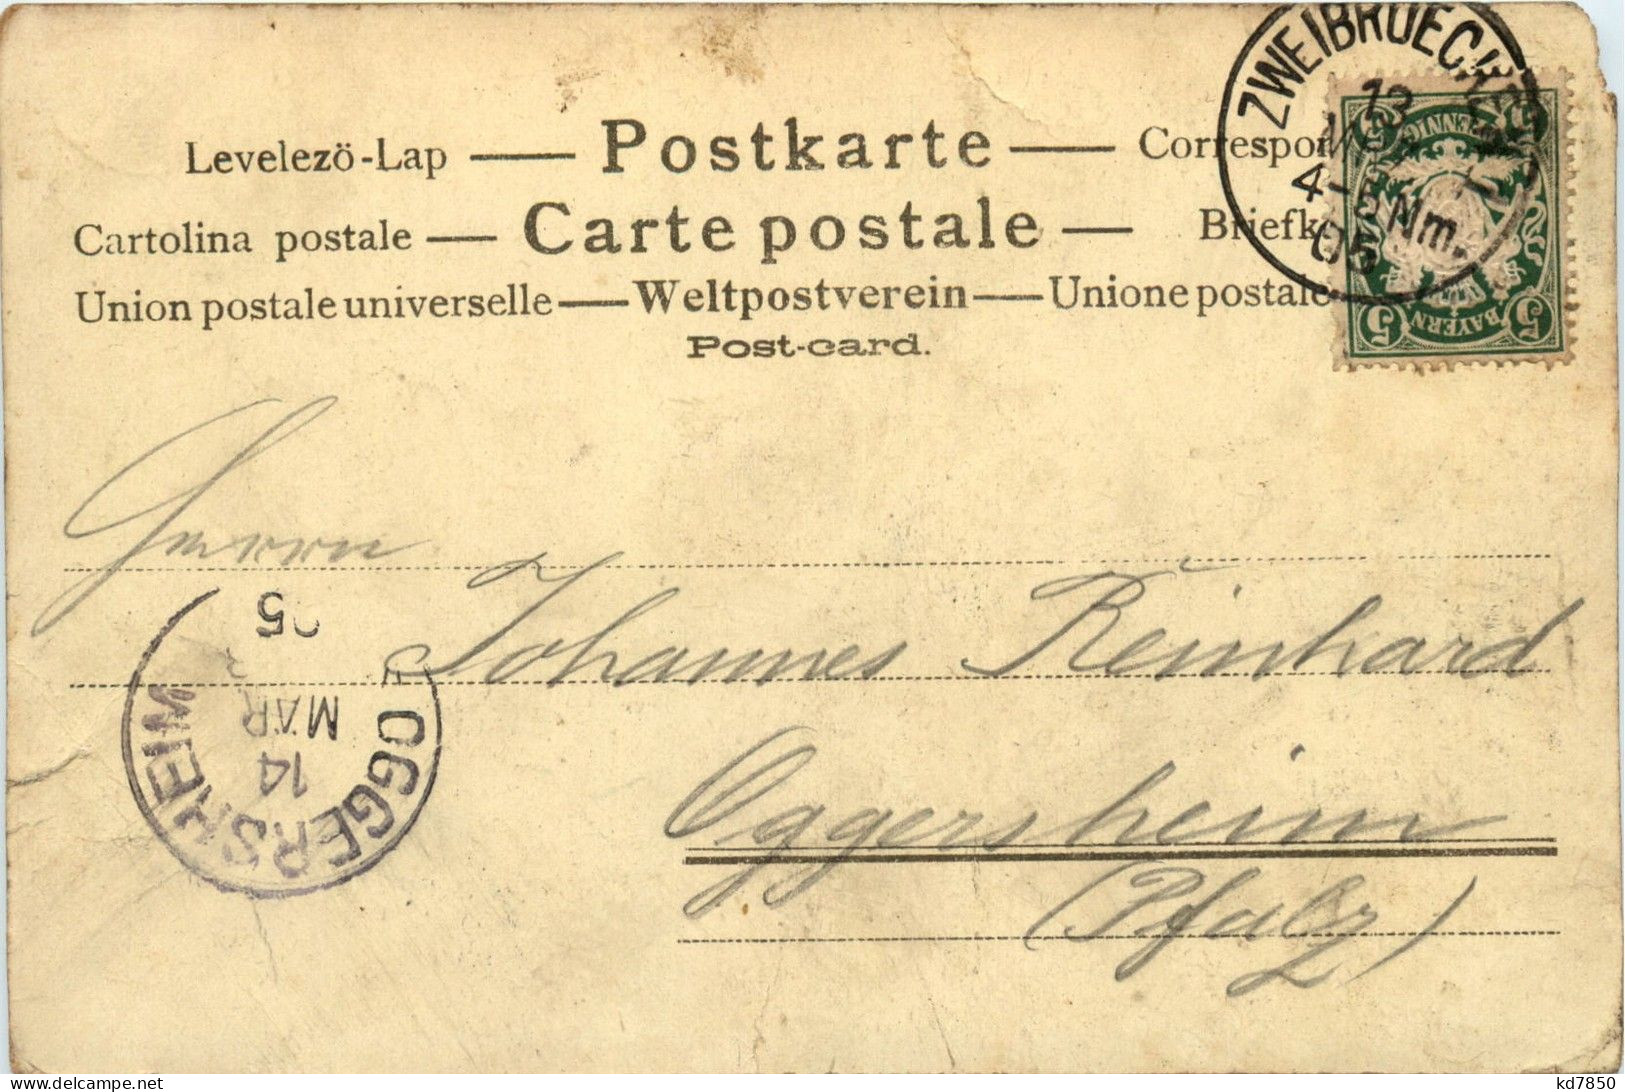 Levelezö-Lap — Postkarte — Correspon
Cartolina postale — Carte postale — Briefk
Union postale universelle — Weltpostverein — Unione postale
Post-card.
ZWEIBRUECKEN
13
4-5 Nm.
05
PFENNIG
5 BAYERN 5
Herrn
Johannes Reinhard
Oggersheim
(Pfalz)
OGGERSHEIM
14
MÄR
05
kd7850